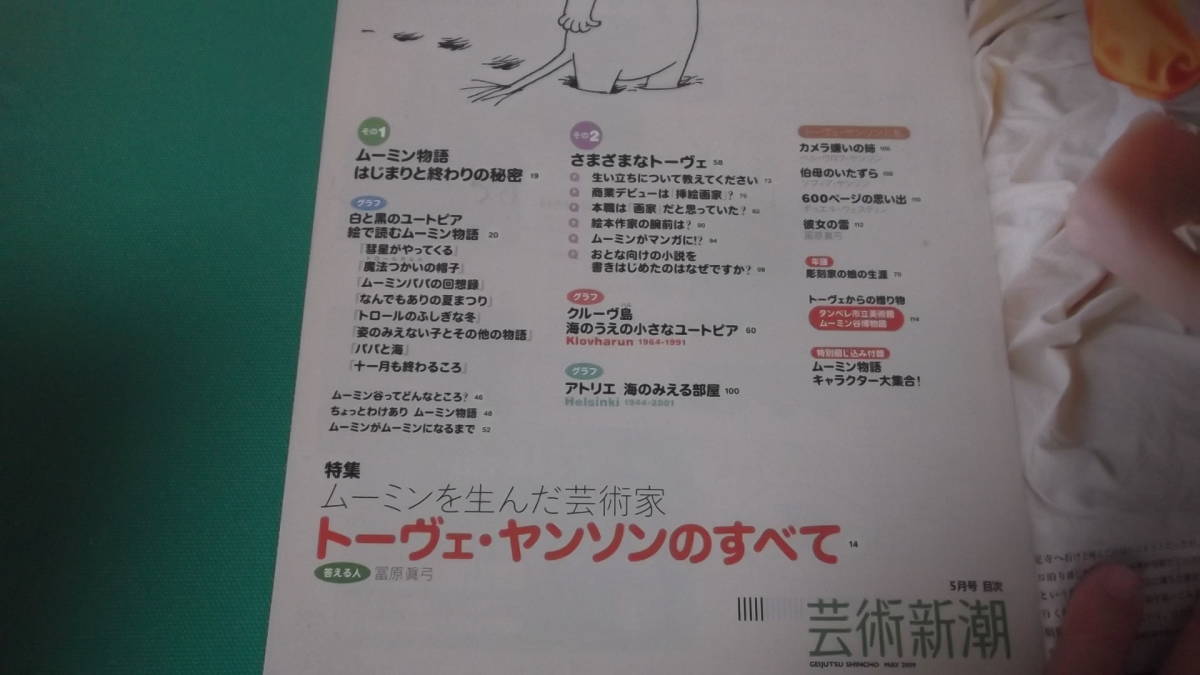 その1
ムーミン物語
はじまりと終わりの秘密 19
グラフ
白と黒のユートピア
絵で読むムーミン物語 20
『彗星がやってくる』
『魔法つかいの帽子』
『ムーミンパパの回想録』
『なんでもありの夏まつり』
『トロールのふしぎな冬』
『姿のみえない子とその他の物語』
『パパと海』
『十一月も終わるころ』
ムーミン谷ってどんなところ? 46
ちょっとわけあり ムーミン物語 48
ムーミンがムーミンになるまで 52
その2
さまざまなトーヴェ 58
Q 生い立ちについて教えてください 72
Q 商業デビューは「挿絵画家」? 76
Q 本職は「画家」だと思っていた? 82
Q 絵本作家の腕前は? 90
Q ムーミンがマンガに!? 94
Q おとな向けの小説を
書きはじめたのはなぜですか? 98
グラフ
クルーヴ島
海のうえの小さなユートピア 60
Klovharun 1964-1991
グラフ
アトリエ 海のみえる部屋 100
Helsinki 1944-2001
カメラ嫌いの姉
ペル・ウロフ・ヤンソン
伯母のいたずら
ソフィア・ヤンソン
600ページの思い出
ボエル・ウェスティン
彼女の雪 112
冨原眞弓
年譜
彫刻家の娘の生涯
トーヴェからの贈り物
タンペレ市立美術館
ムーミン谷博物館 114
特別綴じ込み付録
ムーミン物語
キャラクター大集合!
特集
ムーミンを生んだ芸術家
トーヴェ・ヤンソンのすべて 14
答える人 冨原眞弓
5月号 目次
芸術新潮
GEIJUTSU SHINCHO MAY 2009